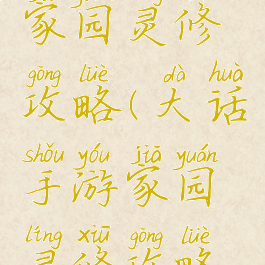 家园灵修
gōng lüè dà huà
攻略(大话
shǒu yóu jiā yuán
手游家园
líng xiū gōng lüè
灵修攻略